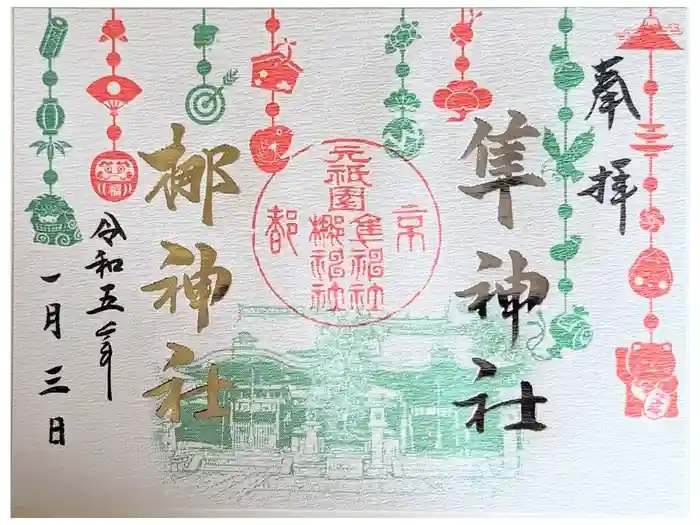 奉拝
隼神社
京都
元祇園
隼神社
梛神社
梛神社
令和五年
一月三日
福